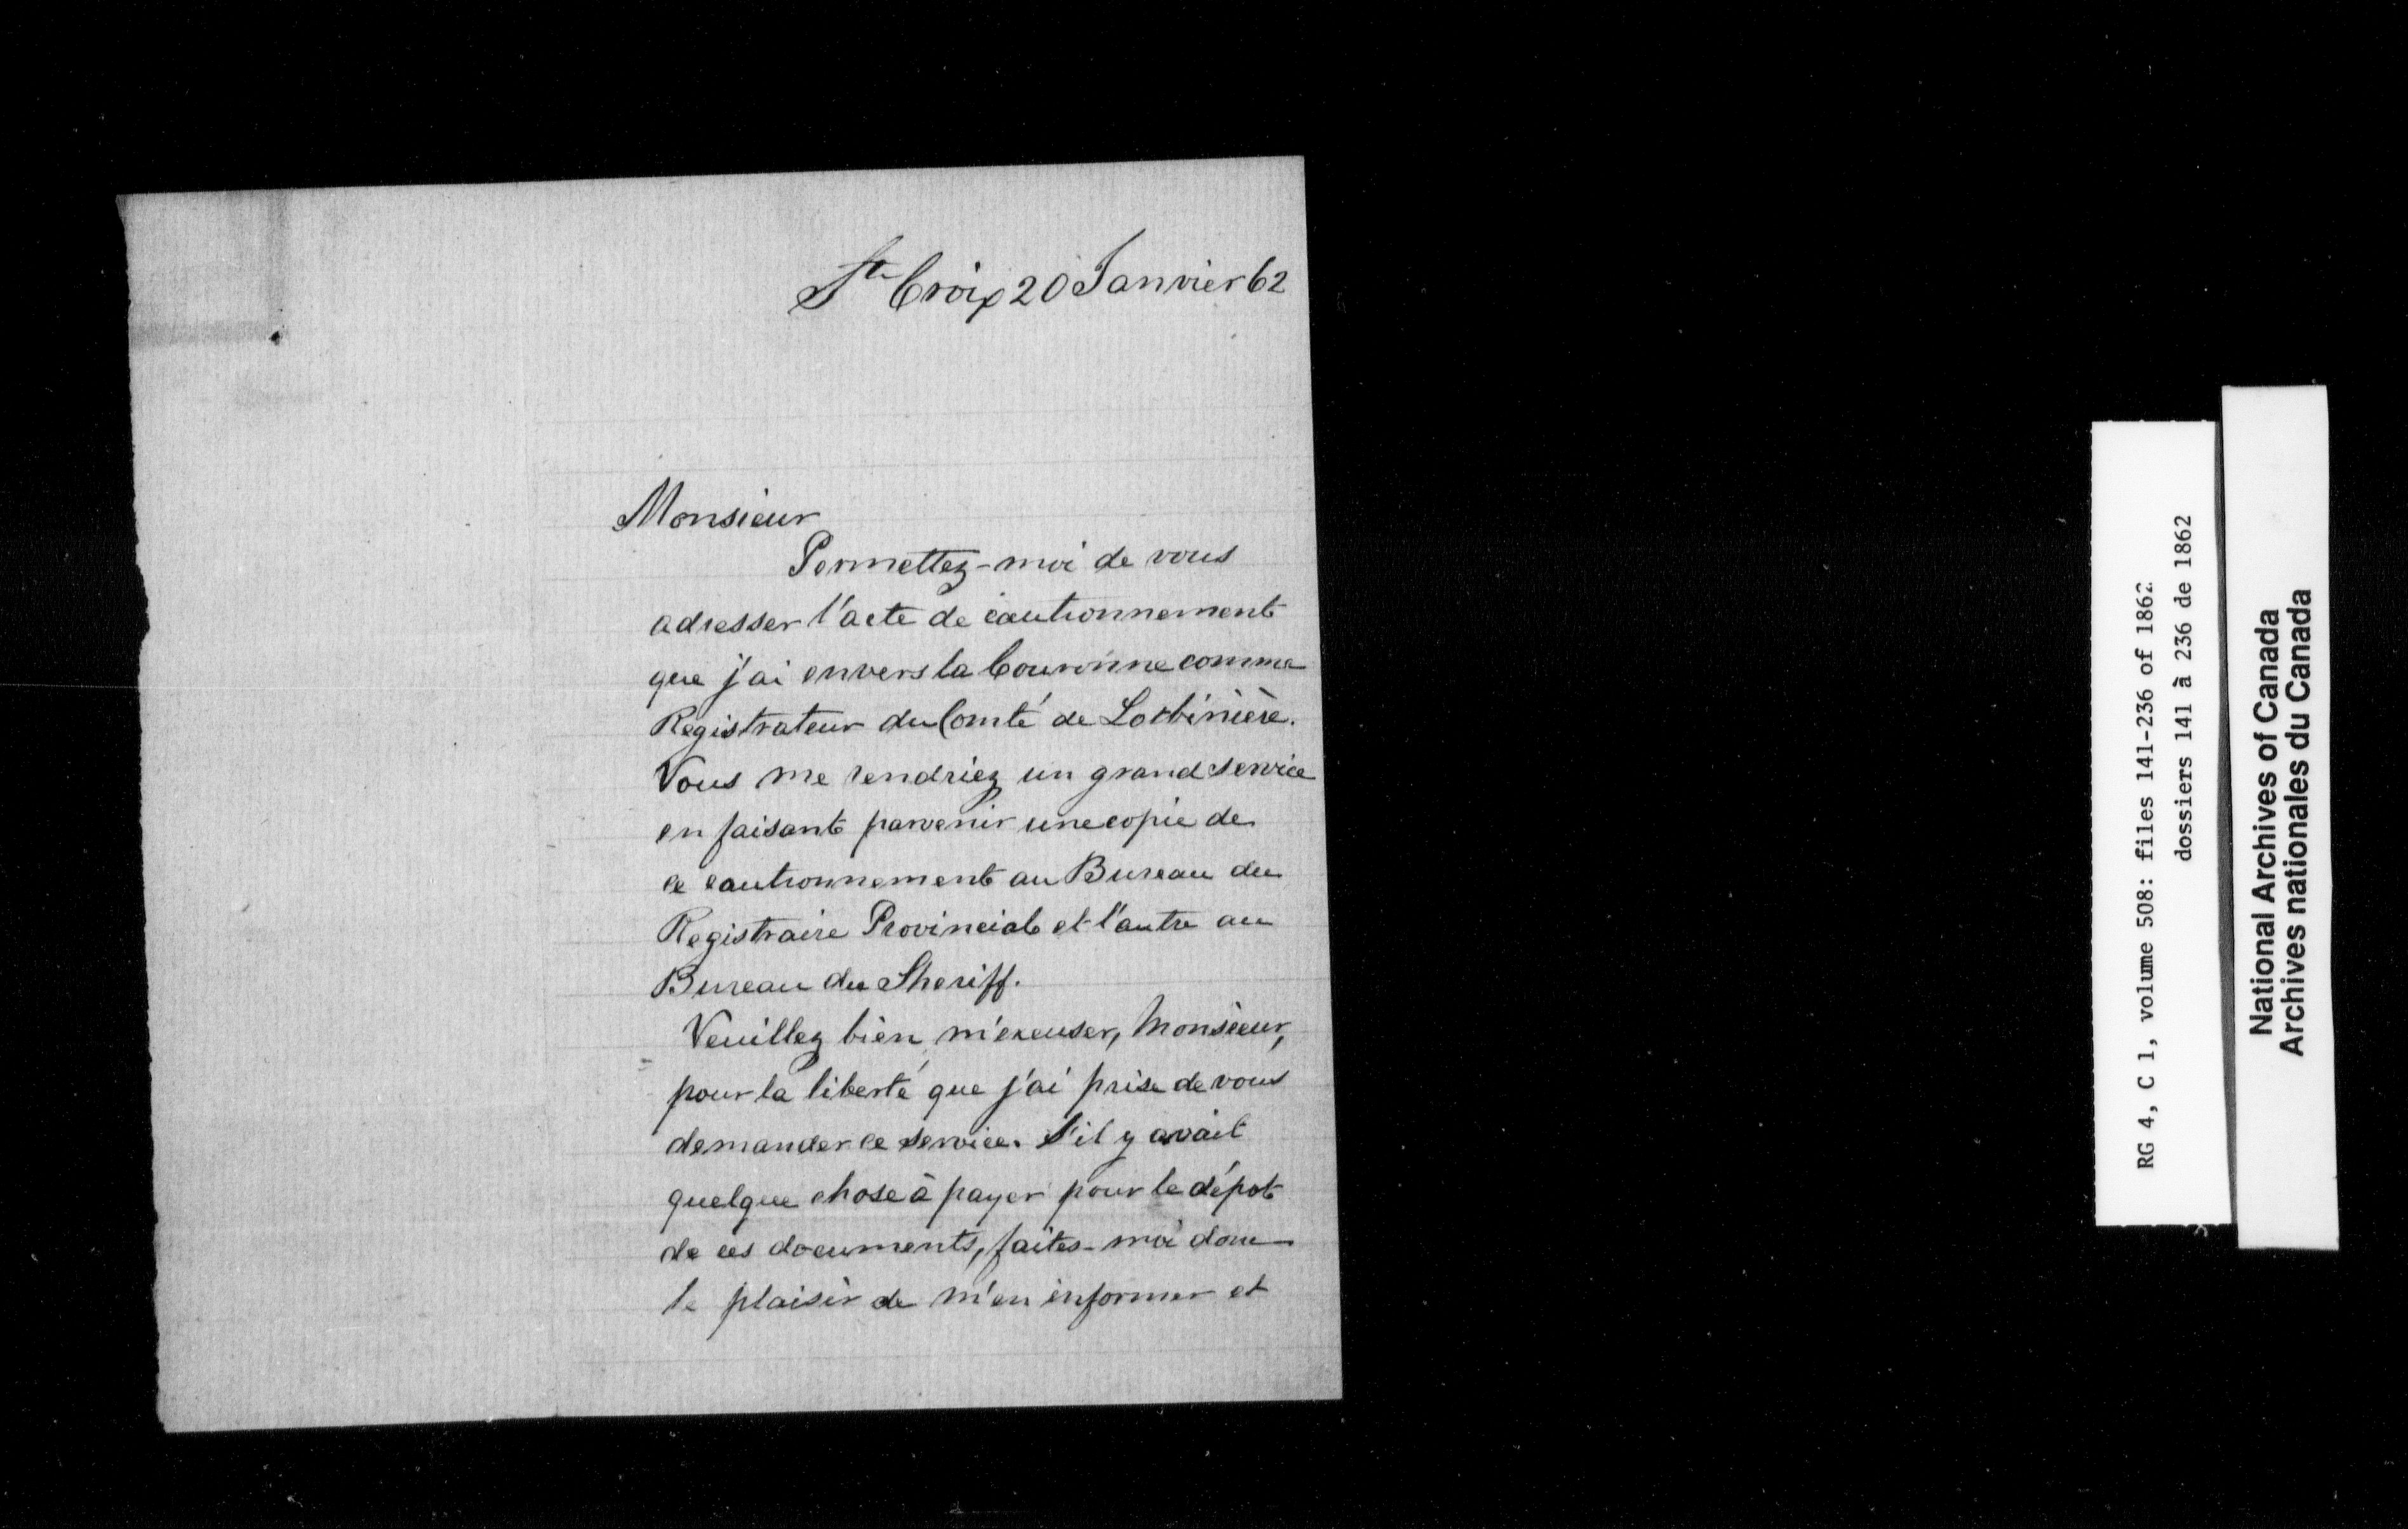 Ste Croix 20 Janvier 62
Monsieur
Permettez-moi de vous
adresser l'acte de cautionnement
que j'ai envers la Couronne comme
Registrateur du Comté de Lotbinière.
Vous me rendriez un grand service
en faisant parvenir une copie de
ce cautionnement au Bureau du
Registraire Provincial et l'autre au
Bureau du Sheriff.
Veuillez bien m'excuser, Monsieur,
pour la liberté que j'ai prise de vous
demander ce service. S'il y avait
quelque chose à payer pour le dépot
de ces documents, faites-moi donc
le plaisir de m'en informer et
RG 4, C 1, volume 508: files 141-236 of 1862
dossiers 141 à 236 de 1862
National Archives of Canada
Archives nationales du Canada